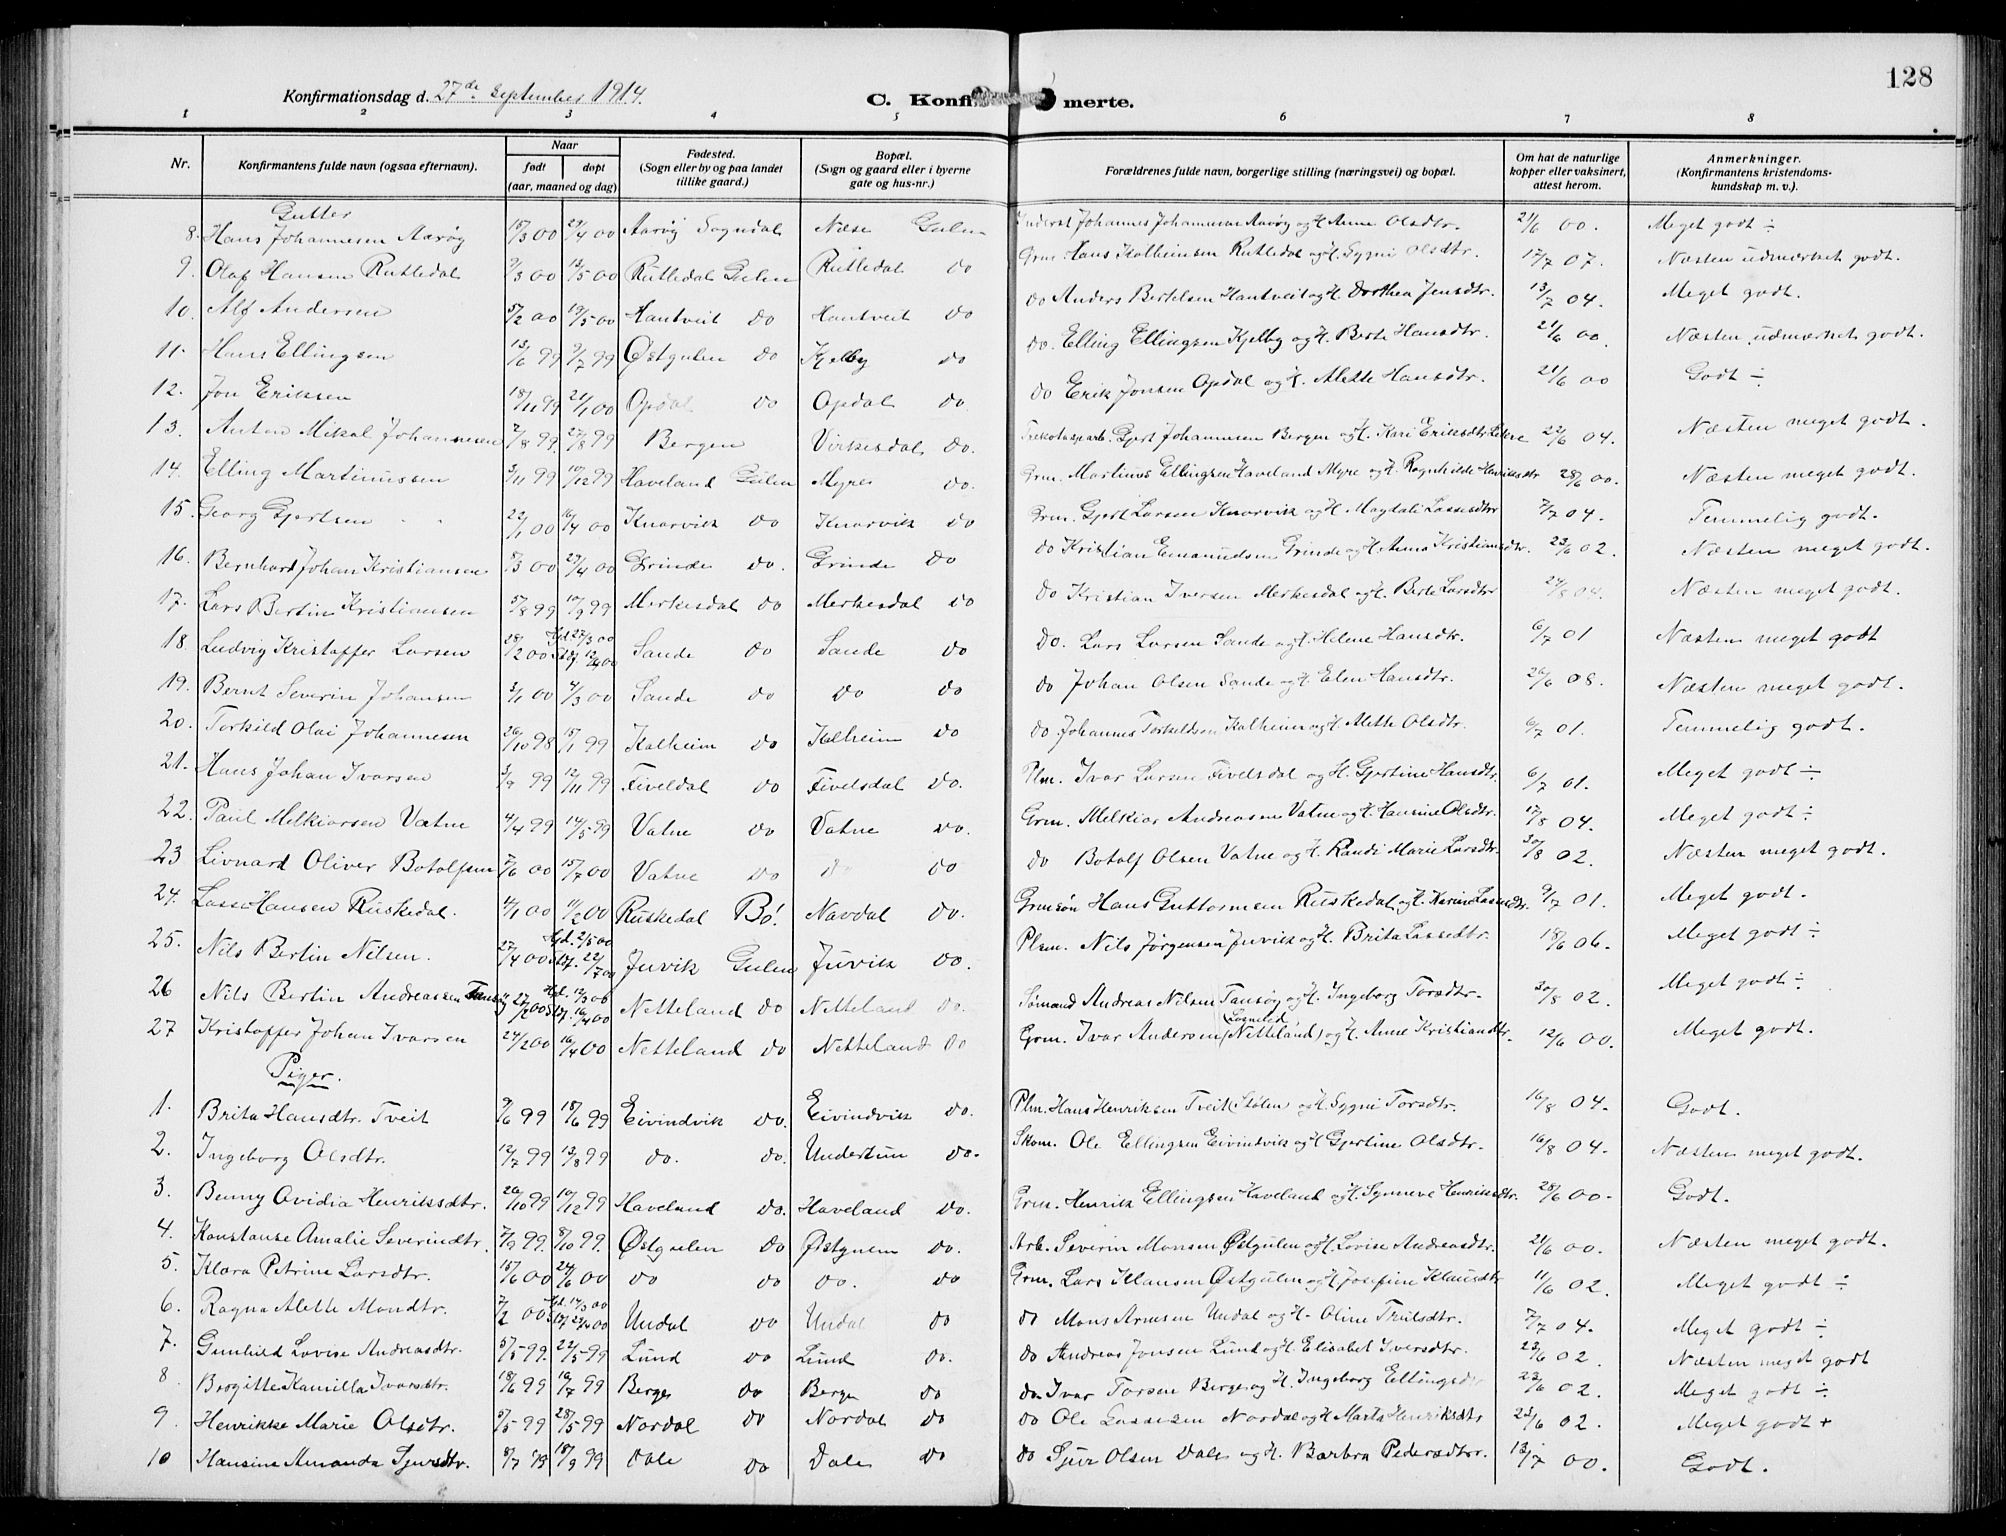 128
Konfirmationsdag d. 27de september 1914.
C. Konfi merte.
1 2 3 4 5 6 7 8
Nr. Konfirmantens fulde navn (ogsaa efternavn). Naar født døpt (aar, maaned og dag) Fødested. (Sogn eller by og paa landet tillike gaard.) Bopæl. (Sogn og gaard eller i byerne gate og hus-nr.) Forældrenes fulde navn, borgerlige stilling (næringsvei) og bopæl. Om hat de naturlige kopper eller vaksinert, attest herom. Anmerkninger. (Konfirmantens kristendomskundskap m. v.).
Gutter
8. Hans Johannesen Aarøy 15/3 00 29/4 00 Aarøy Sogndal Næse Gulen Inderst Johannes Johannesen Aarøy og H. Anne Olsdtr. 21/6 00. Meget godt ÷
9. Olaf Hansen Rutledal 9/3 00 13/5 00 Rutledal Gulen Rutledal do Grm. Hans Kalheimsen Rutledal og H. Sygni Olsdtr. 17/7 07. Næsten udmærket godt.
10. Alf Andersen 5/2 00 19/5 00 Hantveit do Hantveit do do Anders Bertelsen Hantveit og H. Dorthea Jensdtr. 13/7 04. Meget godt.
11. Hans Ellingsen 13/6 99 9/7 99 Østgulen do Kjelby do do. Elling Ellingsen Kjelby og H. Berte Hansdtr. 21/6 00. Næsten udmærket godt.
12. Jon Eriksen 18/11 99 21/1 00 Opdal do Opdal do. do Erik Jonsen Opdal og H. Alette Hansdtr. 21/6 00 Godt ÷
13. Anton Mikal Johannesen 2/8 99. 27/8 99 Bergen Virkesdal do. Gjert Johannesen Bergen og H. Kari Eriksdtr. 22/6 04. Næsten meget godt.
14. Elling Martinussen 3/11 99 10/12 99 Haveland Gulen Myre do. Grm. Martinus Ellingsen Haveland Myre og H. Ragnhilde Henriksdtr 28/6 00. Næsten meget godt.
15. Georg Gjertsen 22/1 00 16/4 00 Knarvik do Knarvik do Grm. Gjert Larsen Knarvik og H. Magdali Lassesdtr 7/7 04. Temmelig godt.
16. Bernhard Johan Kristiansen 8/3 00 29/4 00 Grinde do. Grinde do do Kristian Emanuelsen Grinde og H. Anna Kristiansdtr. 23/6 02. Næsten meget godt.
17. Lars Bertin Kristiansen 5/8 99 17/9 99 Merkesdal do Merkesdal do do Kristian Iversen Merkesdal og H. Berte Larsdtr 24/8 04. Næsten meget godt.
18. Ludvig Kristoffer Larsen 28/2 00 Hjd. 27/3 00 Stdf. 12/4 00 Sande do Sande do do. Lars Larsen Sande og H. Helene Hansdtr. 6/7 01 Næsten meget godt
19. Bernt Severin Johansen 3/1 00 4/3 00 Sande do do do do Johan Olsen Sande og H. Elen Hansdtr. 26/6 08. Næsten meget godt.
20. Torkild Olai Johannesen 26/10 98 15/1 99 Kalheim do Kalheim do do Johannes Torkeldsen Kalheim og H. Alette Olsdtr. 6/7 01. Temmelig godt.
21. Hans Johan Ivarsen 3/9 99 12/11 99 Fiveldal do Fivelsdal do. Plm. Ivar Larsen Fivelsdal og H. Gjertine Hansdtr. 6/7 01. Meget godt ÷
22. Paul Melkiorsen Vatne 4/4 99 14/5 99 Vatne do Vatne do. Grm. Melkior Andreasen Vatne og H. Hansine Olsdtr. 17/8 04. Meget godt ÷
23 Livnard Oliver Botolfsen 7/6 00 15/7 00 Vatne do do do do Botolf Olsen Vatne og H. Randi Marie Larsdtr. 30/8 02. Næsten meget godt.
24. Lasse Hansen Ruskedal. 4/1 00 11/2 00 Ruskedal Bø! Navdal do. Grmsøn Hans Guttormsen Ruskedal og H. Karine Lassesdtr. 9/7 01. Meget godt.
25. Nils Bertin Nilsen. 27/4 00 Hjd. 2/5 00 Stdf. 22/7 00 Juvik Gulen Juvik do. Plm. Nils Jørgensen Juvik og H. Brita Lassedtr. 18/6 06. Meget godt ÷
26 Nils Bertin Andreassen Tansøy 27/2 00 Hjd. 12/3 00 Stdf. 16/4 00 Netteland do Netteland do. Sømand Andreas Nilsen Tansøy og H. Ingeborg Torsdtr. 30/8 02. Meget godt ÷
27 Kristoffer Johan Ivarsen 24/2 00 16/4 00 Netteland do Netteland do Grm. Ivar Andersen (Netteland) og H. Anne Kristiandtr. 12/6 00. Meget godt.
Piger.
1. Brita Hansdtr. Tveit 9/6 99 18/6 99 Eivindvik do. Eivindvik do. Plm. Hans Henriksen Tveit (Stølen og H. Sygni Torsdtr. 16/8 04. Godt.
2. Ingeborg Olsdtr. 12/7 99 13/8 99 do. do. Undertun do. Skom. Ole Ellingsen Eivindvik og H. Gjertine Olsdtr. 16/8 04. Næsten meget godt.
3. Benny Ovidia Henriksdtr. 26/10 99 10/12 99 Haveland do. Haveland do. Grm. Henrik Ellingsen Haveland og H. Synneve Henriksdtr. 28/6 00. Godt.
4. Konstanse Amalie Severindtr. 7/9 99. 8/10 99. Østgulen do Østgulen do. Arb. Severin Monsen Østgulen og H. Lovise Andreasdtr. 21/6 00. Næsten meget godt.
5. Klara Petrine Larsdtr. 15/6 00 24/6 00 do do do. do Grm. Lars Klausen Østgulen og H. Josefine Klausdtr 11/6 02. Meget godt ÷
6. Ragna Alette Mondtr. 7/2 00 Hjd. 14/3 00 Undal do Undal do do Mons Arnesen Undal og H. Oline Trulsdtr. 7/7 04. Meget godt ÷
7. Gunhild Lovise Andreasdtr. 5/5 99. 22/5 99 Lund do Lund do. do Andreas Jonsen Lund og H. Elisabet Iversdtr. 23/6 02. Næsten meget godt
8 Brogitte Kamilla Ivarsdtr. 18/6 99 16/7 99 Berge do Berge do do. Ivar Torsen Berge og H. Ingeborg Ellingsdtr 23/6 02. Meget godt ÷
9. Henrikke Marie Olsdtr. 5/5 99 28/5 99 Nordal do Nordal do do Ole Lassesen Nordal og H. Marta Henriksdtr 23/6 02. Meget godt +
10 Hansine Amanda Sjursdtr. 8/7 99 18/9 99 Dale do Dale do do Sjur Olsen Dale og H. Barbra Pedersdtr. 13/7 00. Godt.